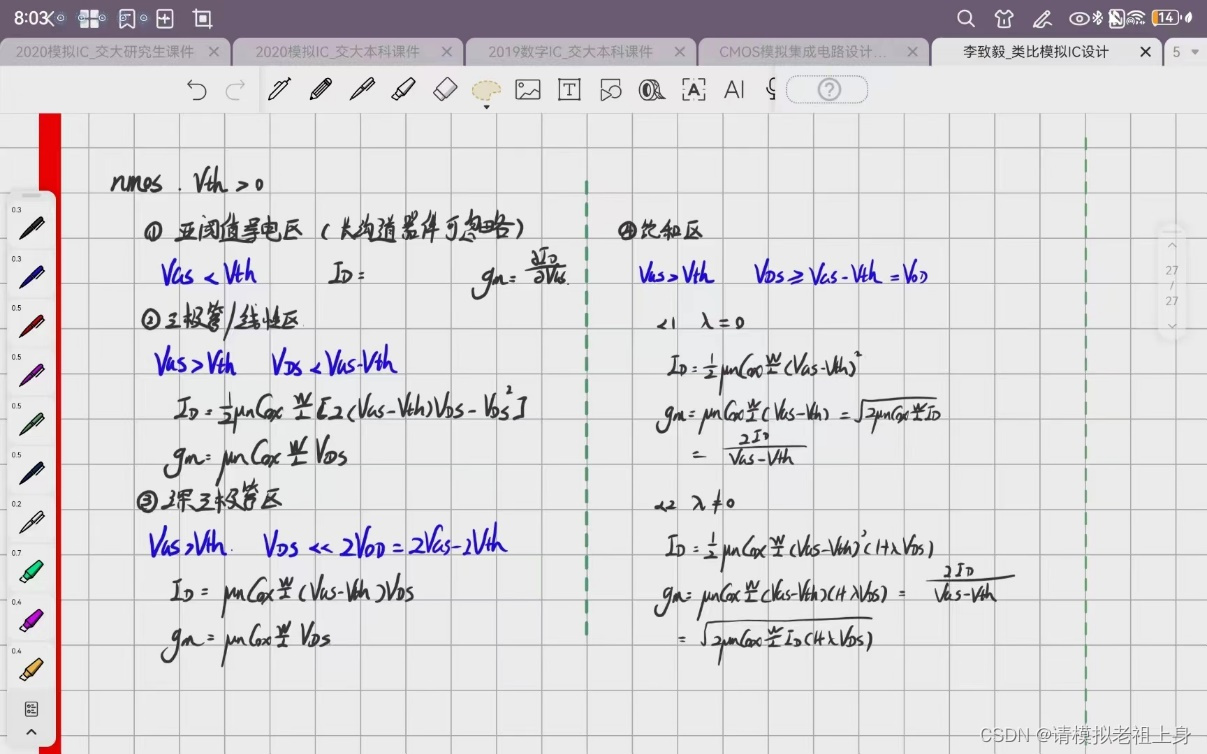 8:03
14
2020模拟IC_交大研究生课件 ×
2020模拟IC_交大本科课件 ×
2019数字IC_交大本科课件 ×
CMOS模拟集成电路设计... ×
李致毅_类比模拟IC设计 ×
5
T
A
AI
?
nmos . Vth > 0
① 亚阈值导电区 (长沟道器件可忽略)
VGS < Vth ID = gm = ∂ID/∂VGS
② 三极管/线性区
VGS > Vth VDS < VGS-Vth
ID = 1/2 μnCox W/L [2(VGS-Vth)VDS - VDS²]
gm = μnCox W/L VDS
③ 深三极管区
VGS > Vth. VDS << 2VOD = 2VGS-2Vth
ID = μnCox W/L (VGS-Vth)VDS
gm = μnCox W/L VDS
④ 饱和区
VGS > Vth VDS ≥ VGS-Vth = VOD
<1 λ = 0
ID = 1/2 μnCox W/L (VGS-Vth)²
gm = μnCox W/L (VGS-Vth) = √(2μnCox W/L ID)
= 2ID/(VGS-Vth)
<2 λ ≠ 0
ID = 1/2 μnCox W/L (VGS-Vth)² (1+λVDS)
gm = μnCox W/L (VGS-Vth)(1+λVDS) = 2ID/(VGS-Vth)
= √(2μnCox W/L ID(1+λVDS))
0.3
0.3
0.5
0.5
0.5
0.5
0.2
0.7
0.4
0.4
27
/
27
CSDN @请模拟老祖上身